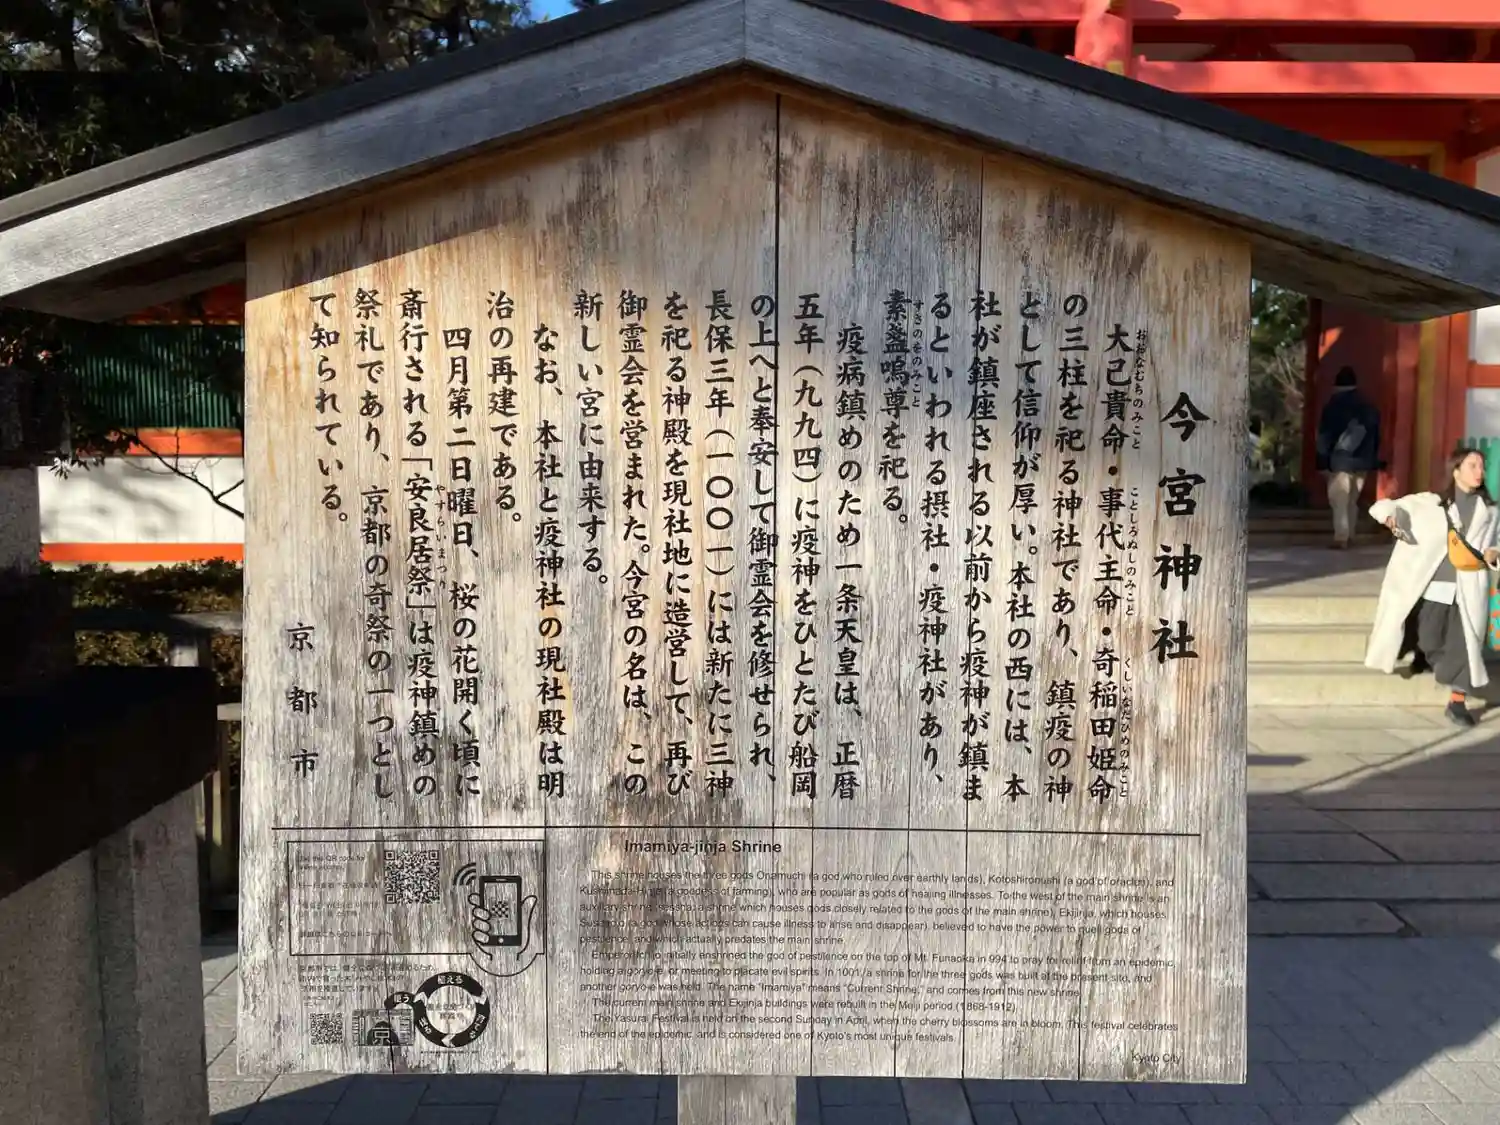 今宮神社
大己貴命・事代主命・奇稲田姫命
おおなむちのみこと
ことしろぬしのみこと
くしいなだひめのみこと
の三柱を祀る神社であり、鎮疫の神
として信仰が厚い。本社の西には、本
社が鎮座される以前から疫神が鎮ま
るといわれる摂社・疫神社があり、
素盞嗚尊を祀る。
すさのをのみこと
疫病鎮めのため一条天皇は、正暦
五年(九九四)に疫神をひとたび船岡
の上へと奉安して御霊会を修せられ、
長保三年(一〇〇一)には新たに三神
を祀る神殿を現社地に造営して、再び
御霊会を営まれた。今宮の名は、この
新しい宮に由来する。
なお、本社と疫神社の現社殿は明
治の再建である。
四月第二日曜日、桜の花開く頃に
斎行される「安良居祭」は疫神鎮めの
やすらいまつり
祭礼であり、京都の奇祭の一つとし
て知られている。
京都市
Imamiya-jinja Shrine
This shrine houses the three gods Onamuchi (a god who ruled over earthly lands), Kotoshironushi (a god of oracles), and
Kushinada-Hime (a goddess of farming), who are popular as gods of healing illnesses. To the west of the main shrine is an
auxiliary shrine (sessha: a shrine which houses gods closely related to the gods of the main shrine), Ekijinja, which houses
Susanoo (a god whose actions can cause illness to arise and disappear), believed to have the power to quell gods of
pestilence, and which actually predates the main shrine.
Emperor Ichijo initially enshrined the god of pestilence on the top of Mt. Funaoka in 994 to pray for relief from an epidemic,
holding a goryo-e, or meeting to placate evil spirits. In 1001, a shrine for the three gods was built at the present site, and
another goryo-e was held. The name "Imamiya" means "Current Shrine," and comes from this new shrine.
The current main shrine and Ekijinja buildings were rebuilt in the Meiji period (1868-1912).
The Yasurai Festival is held on the second Sunday in April, when the cherry blossoms are in bloom. This festival celebrates
the end of the epidemic, and is considered one of Kyoto's most unique festivals.
Kyoto City
Use this QR code for
植える
使う